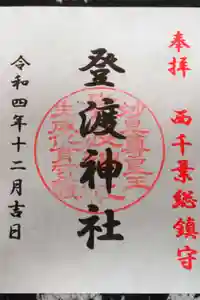 奉拝 西千葉総鎮守
登渡神社
令和四年十二月吉日